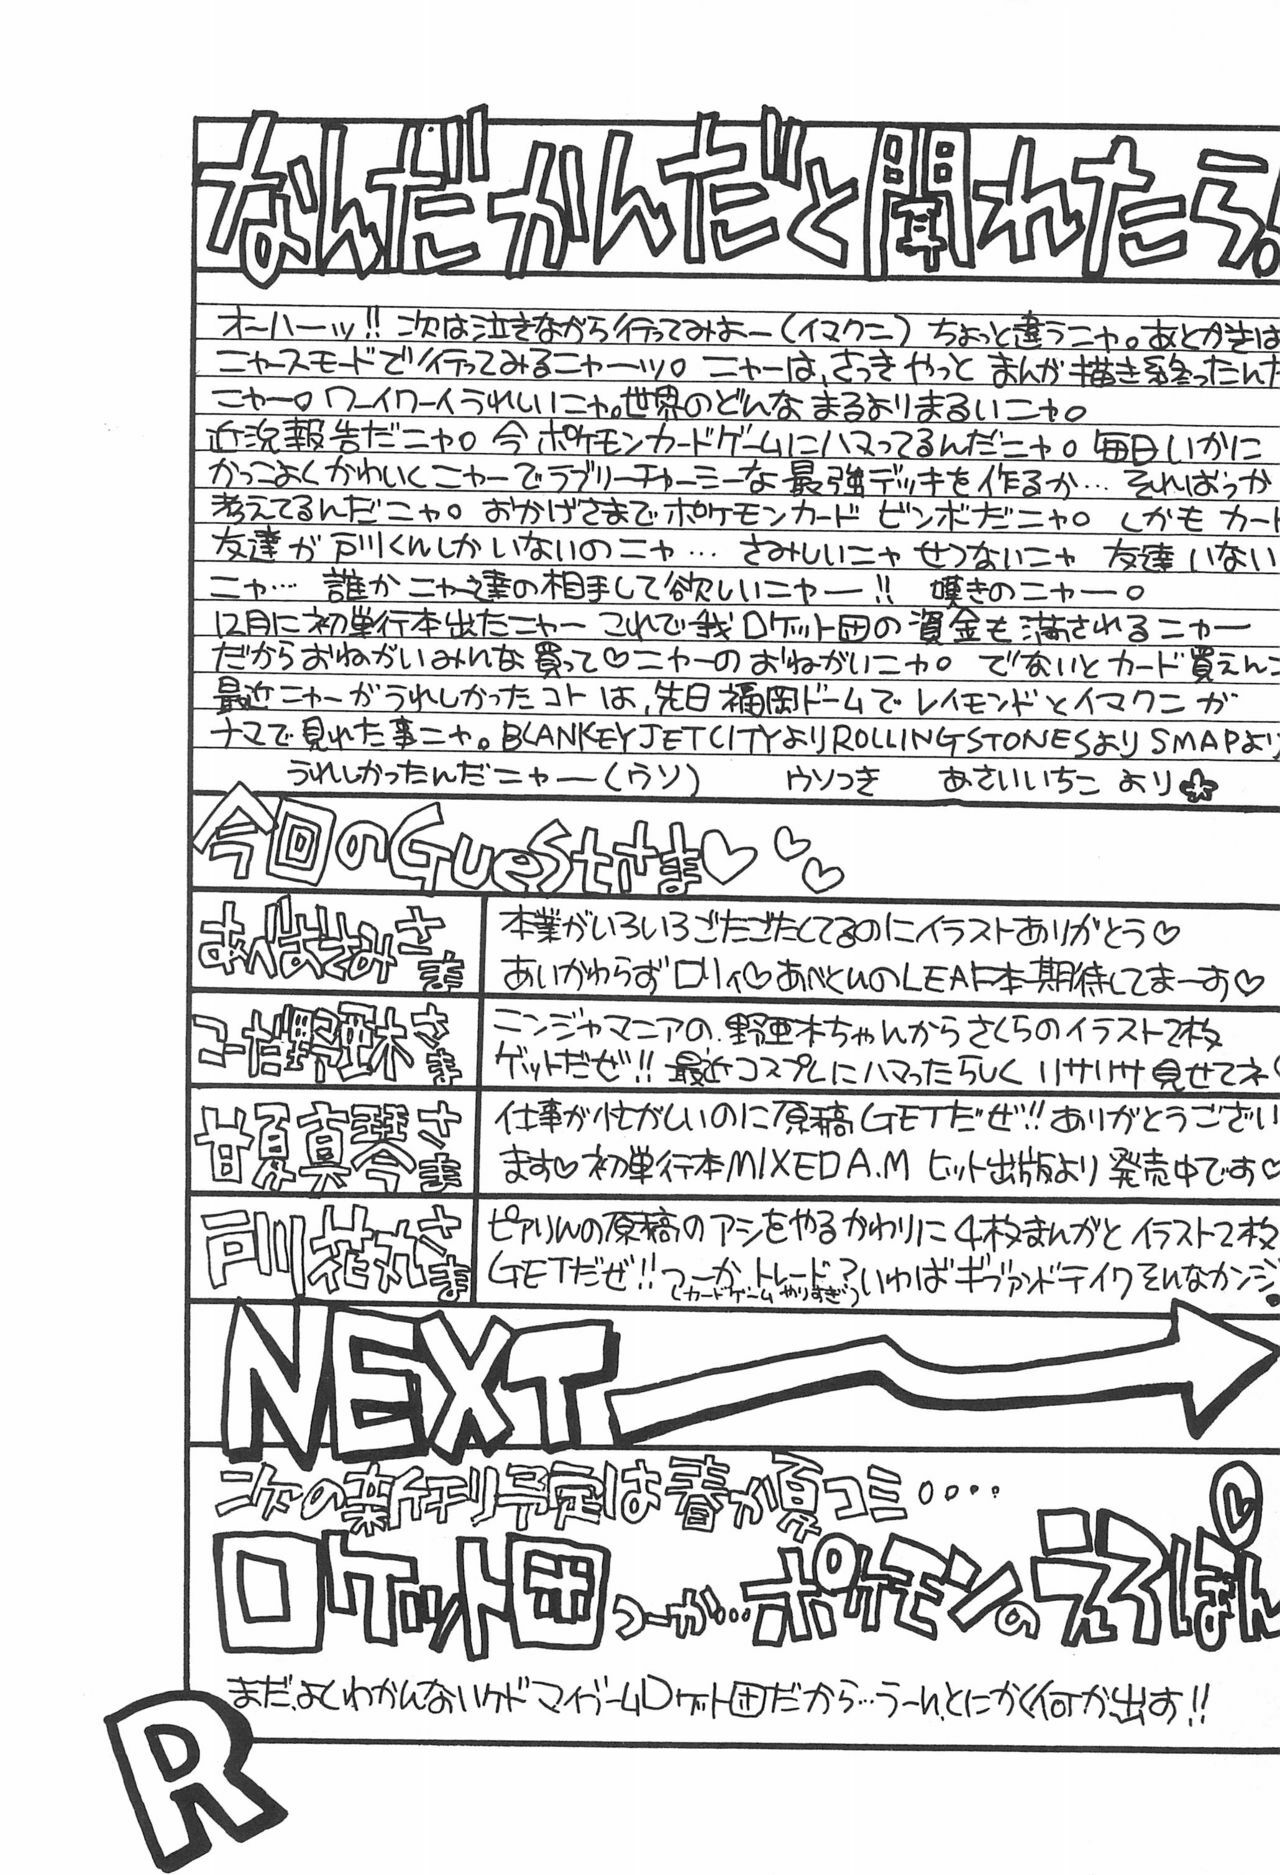 なんだかんだと聞れたら!
オーハーッ!! 次は泣きながら行ってみよー(イマクニ) ちょっと違うニャ。あとがきは
ニャースモードで行ってみるニャーッ。 ニャーは、さっき やっと まんが 描き終ったんだ
ニャー。ワーイワーイうれしいニャ。世界のどんな まるよりまるいニャ。
近況報告だニャ。今 ポケモンカードゲームにハマってるんだニャ。毎日いかに
かっこよくかわいくニャーでラブリーチャーミーな 最強デッキを作るか… そればっか
考えてるんだニャ。おかげさまでポケモンカード ビンボだニャ。しかも カード
友達が 戸川くんしかいないのニャ… さみしいニャ せつないニャ 友達いない
ニャ… 誰か ニャー達の相手して欲しいニャー!! 嘆きのニャー。
12月に初単行本出たニャー これで我ロケット団の資金も満されるニャー
だからおねがいみんな買って♡ニャーのおねがいニャ。でないとカード買えん
最近ニャーがうれしかったコトは、先日福岡ドームでレイモンドとイマクニが
ナマで見れた事ニャ。BLANKEY JET CITYよりROLLING STONESよりSMAPより
うれしかったんだニャー(ウソ) ウソつき あさいいちこ より☆
今回のGuestさま♡♡♡
あべはさみさま
本業がいろいろごたごたしてるのにイラストありがとう♡
あいかわらずロリィ♡あべとひのLEAF本期待してまーす♡
こーだ野亜木さま
ニンジャマニアの野亜木ちゃんからさくらのイラスト2枚
ゲットだぜ!! 最近コスプレにハマったらしく リサリサ見せてネ♡
甘夏真琴さま
仕事が忙がしいのに原稿GETだぜ!!ありがとうござい
ます♡初単行本MIXED A.M ヒット出版より発売中です♡
戸川花丸さま
ピアリんの原稿のアシをやるかわりに4枚まんがとイラスト2枚
GETだぜ!! つーか トレード?いわばギブアンドテイクそんなカンジ
(カードゲーム やりすぎ)
NEXT
次の新刊予定は春か夏コミ。。。。
ロケット団つーか…ポケモンのえろほん
まだ、よくわかんないケドマイブームロケット団だから…うーん、とにかく何か出す!!
R